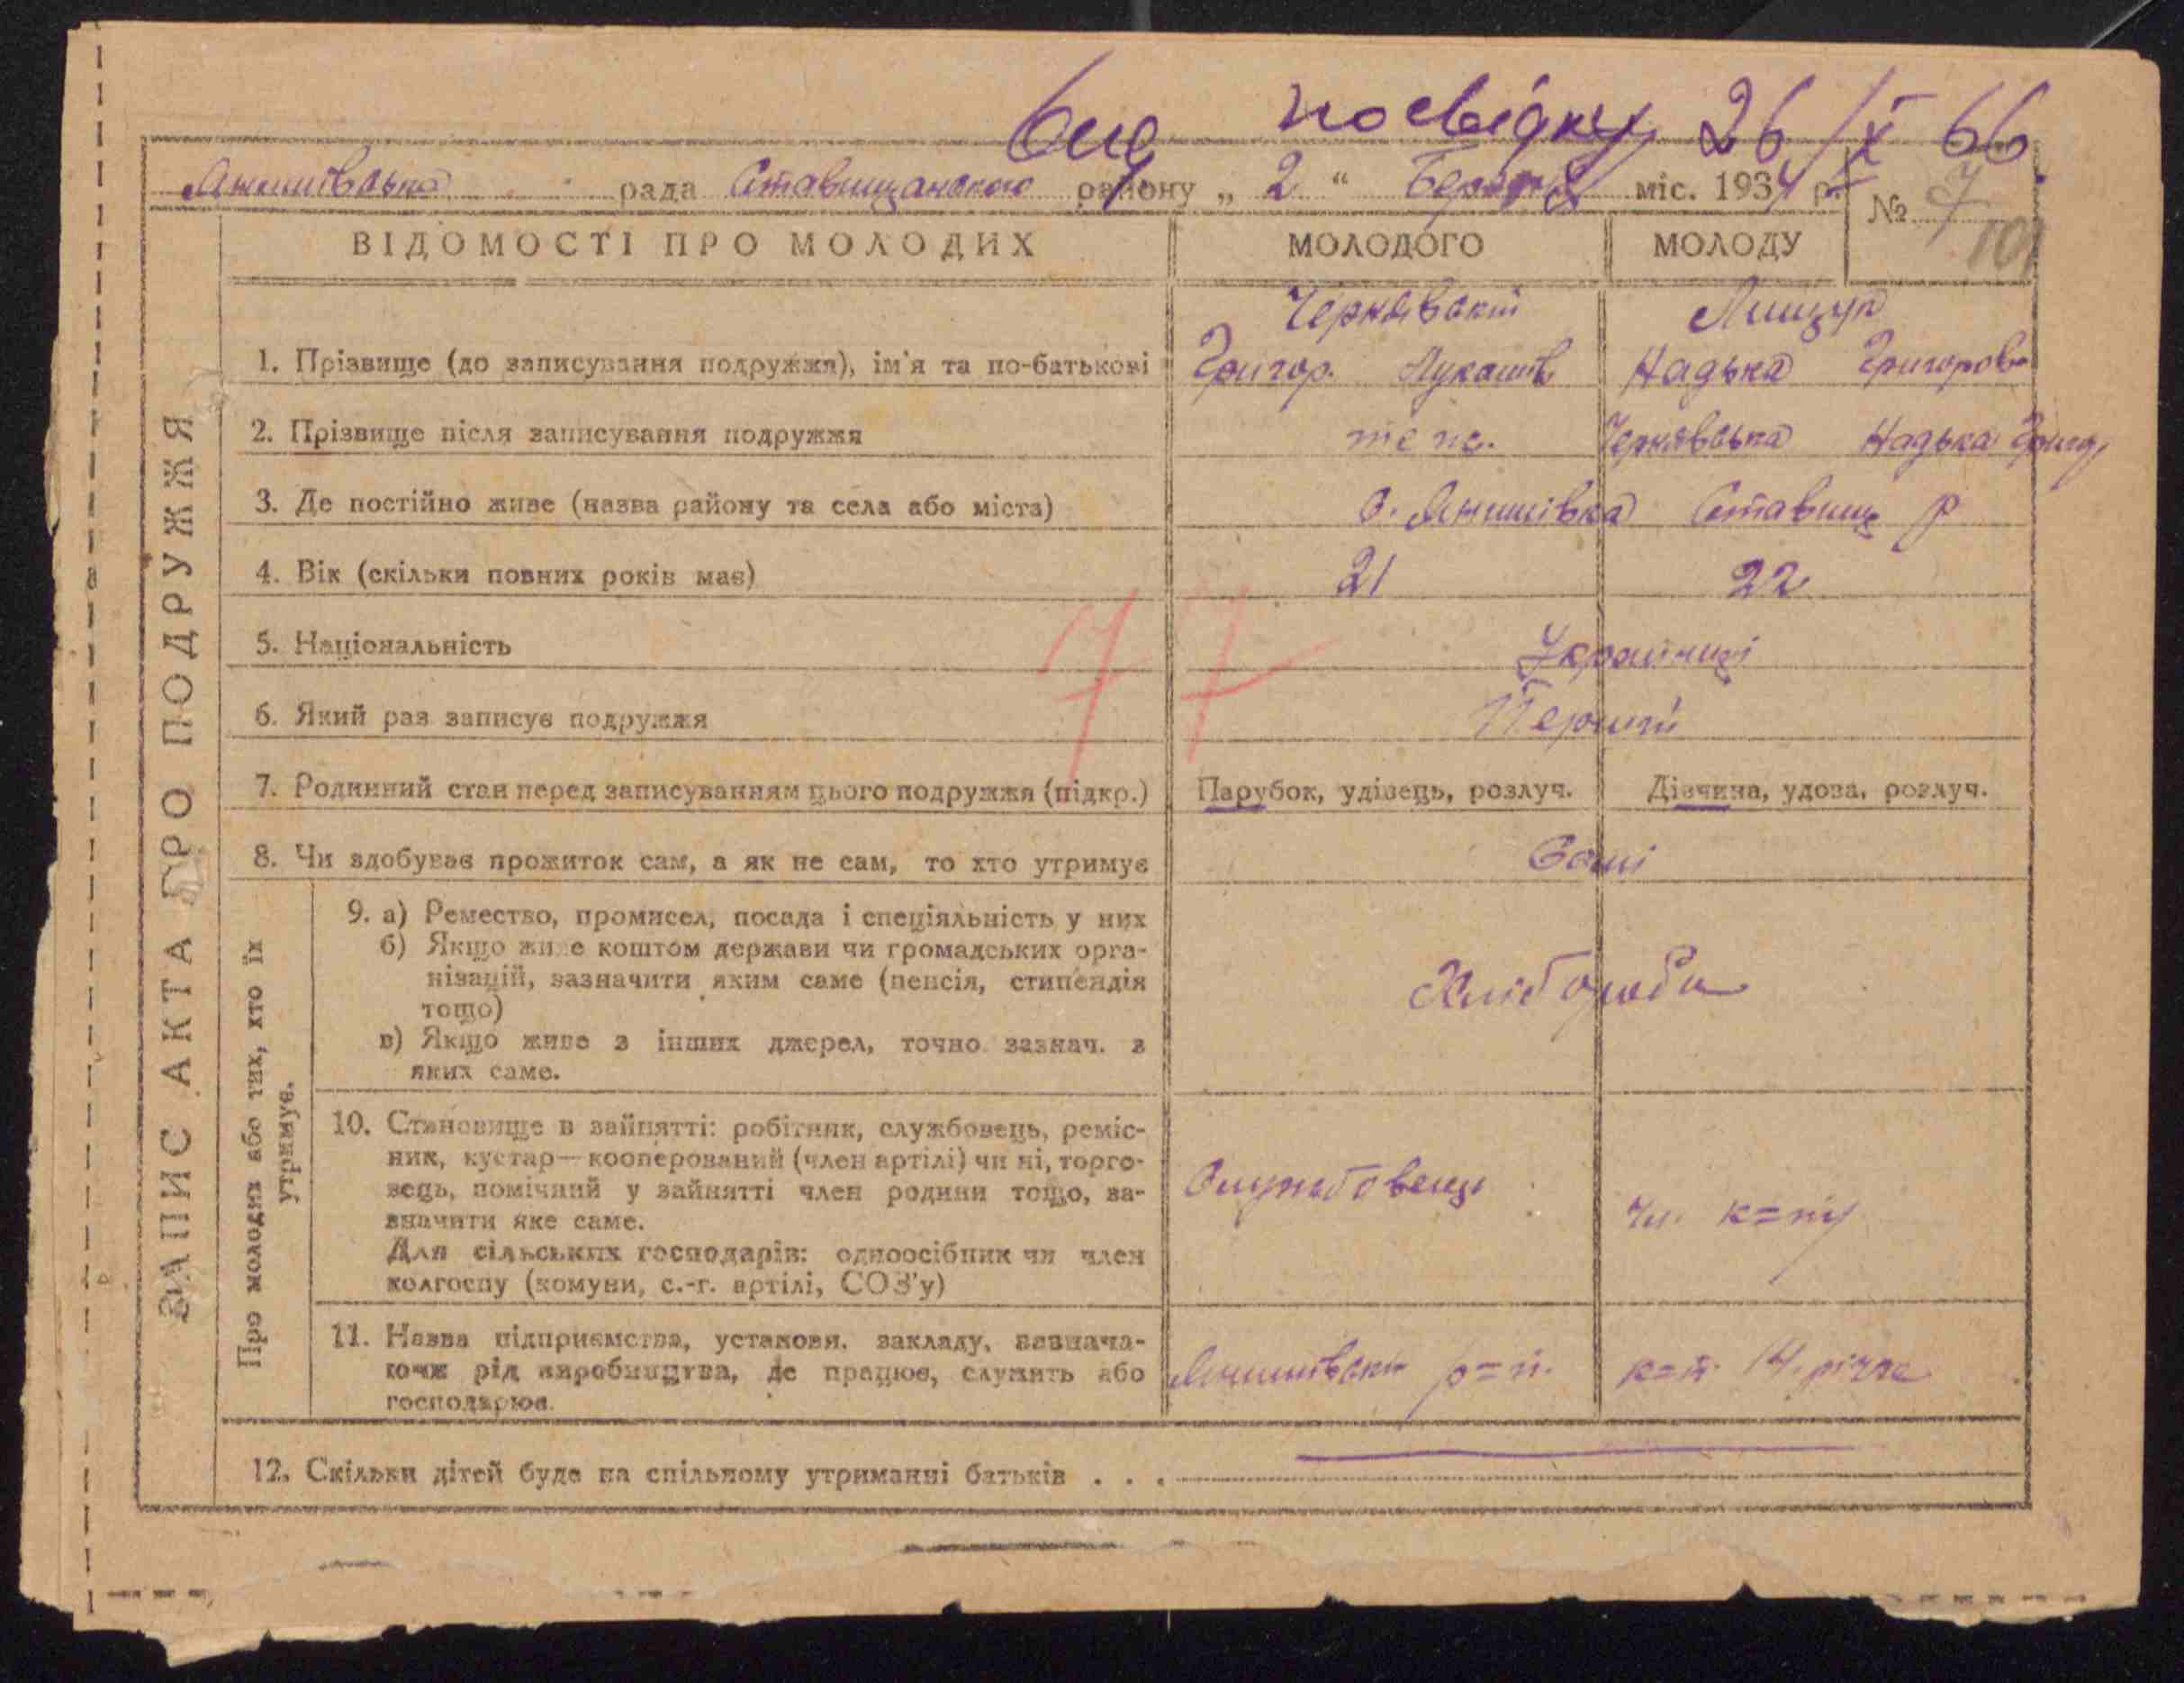 посвідку 26/X 66
рада Ставищанского району „ 2 “ Березня міс. 1934 р. № 7
101
ВІДОМОСТІ ПРО МОЛОДИХ МОЛОДОГО МОЛОДУ
Чернявский Лищук
1. Прізвище (до записування подружжя), ім'я та по-батькові Григор. Лукашів Надька Григоров
2. Прізвище після записування подружжя те ж. Чернявська Надька Григ
3. Де постійно живе (назва району та села або міста) с. Янишівка Ставищ р
4. Вік (скільки повних років має) 21 22
5. Національність Українці
6. Який раз записує подружжя Перший
77
7. Родинний стан перед записуванням цього подружжя (підкр.) Парубок, удівець, розлуч. Дівчина, удова, розлуч.
8. Чи здобуває прожиток сам, а як не сам, то хто утримує Самі
ЗАПИС АКТА ПРО ПОДРУЖЖЯ
Про молодих або тих, хто їх
утримує.
9. а) Ремество, промисел, посада і спеціяльність у них
б) Якщо живе коштом держави чи громадських орга-
нізацій, зазначити яким саме (пенсія, стипендія
тощо)
Хлібороби
в) Якщо живе з інших джерел, точно зазнач. з
яких саме.
10. Становище в зайнятті: робітник, службовець, реміс-
ник, кустар—кооперований (член артілі) чи ні, торго-
вець, помічний у зайнятті член родини тощо, за-
значити яке саме.
Для сільських господарів: одноосібник чи член
колгоспу (комуни, с.-г. артілі, СОЗ'у)
Службовець чл. к=пу
11. Назва підприємства, установи, закладу, зазнача-
ючи рід виробництва, де працює, служить або
господарює.
к=п 14. річчя
12. Скільки дітей буде на спільному утриманні батьків . . .